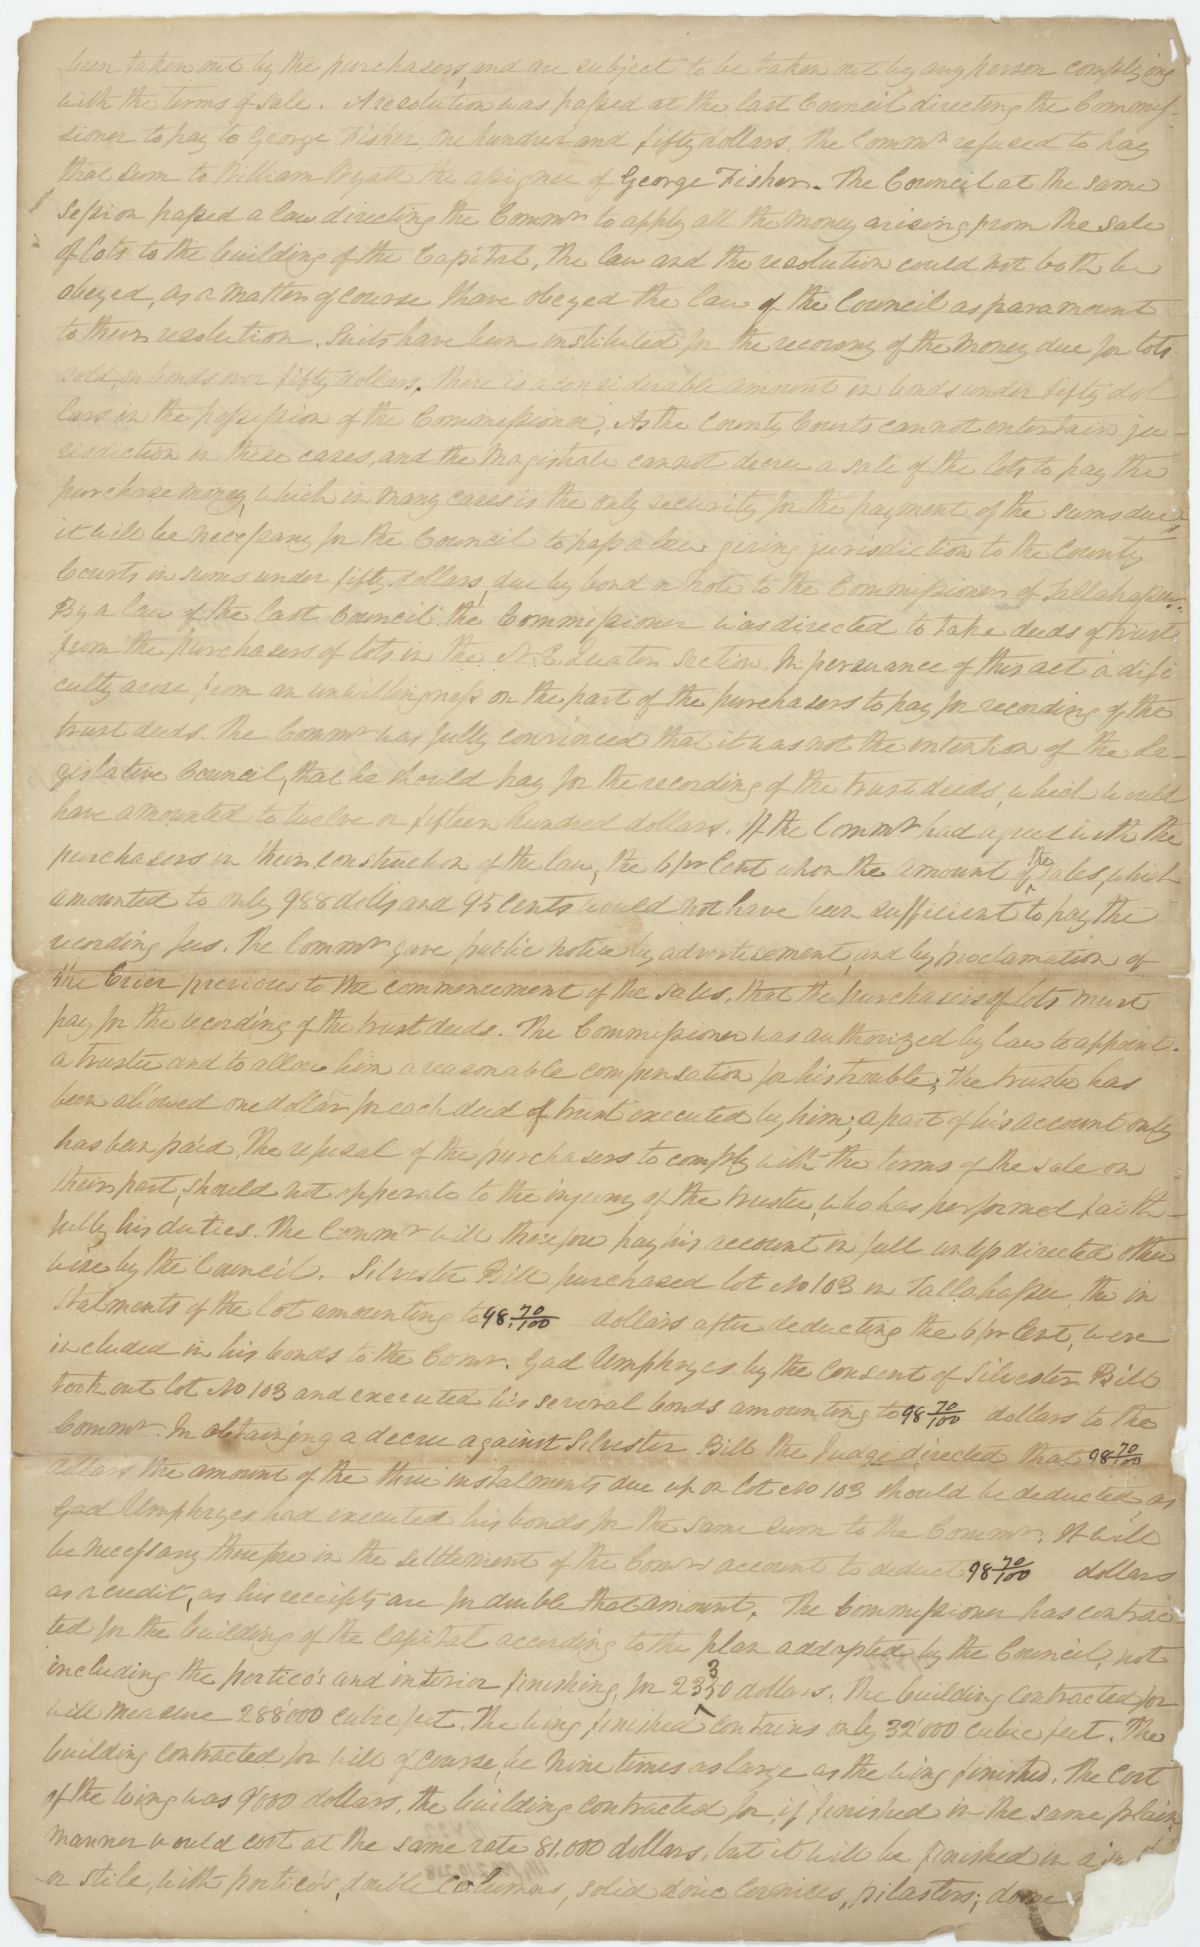 been taken out by the purchasers, and are subject to be taken out by any person complying
with the terms of sale. A resolution was passed at the last Council directing the Commis-
sioner to pay to George Fisher one hundred and fifty dollars. The Commr refused to pay
that sum to William Wyatt the assignee of George Fisher. The Council at the same
session passed a law directing the Commr to apply all the money arising from the sale
of lots to the building of the Capital, the law and the resolution could not both be
obeyed, as a matter of course I have obeyed the law of the Council as paramount
to their resolution. Suits have been instituted for the recovery of the money due for lots
sold, on bonds over fifty dollars. There is a considerable amount in bonds under fifty dol
lars in the possession of the Commissioner. As the County Courts cannot entertain ju-
risdiction in these cases, and the Magistrate cannot decree a sale of the lots to pay the
purchase money, which in many cases is the only security for the payment of the sums due,
it will be necessary for the Council to pass a law giving jurisdiction to the County
Courts in sums under fifty dollars, due by bond or note to the Commissioner of Tallahassee.
By a law of the last Council the Commissioner was directed to take deeds of trust
from the purchasers of lots in the N.E. Quater Section. In persuance of this act a difi
culty arose from an unwillingness on the part of the purchasers to pay for recording of the
trust deeds. The Commr was fully convinced that it was not the intention of the Le-
gislative Council, that he should pay for the recording of the trust deeds, which would
have amounted to twelve or fifteen hundred dollars. If the Commr had agreed with the
purchasers in their construction of the law, the 6 pr Cent upon the amount of the sales, which
amounted to only 988 dolls and 95 Cents would not have been sufficient to pay the
recording fees. The Commr gave public notice by advertisement, and by proclamation of
the Crier previous to the commencement of the sales, that the purchasers of lots must
pay for the recording of the trust deeds. The Commissioner was authorized by law to appoint
a trustee and to allow him a reasonable compensation for his trouble; The trustee has
been allowed one dollar for each deed of trust executed by him; a part of his account only
has been paid, the refusal of the purchasers to comply with the terms of the sale on
their part, should not opperate to the injury of the trustee, who has performed faith-
fully his duties. The Commr will therefore pay his account in full unless directed other
wise by the Council. Silvester Bill purchased lot No 103 in Tallahassee, the in
stalments of the lot amounting to 98 70/100 dollars after deducting the 6 pr Cent, were
included in his bonds to the Comr. Gad Umphryes by the consent of Silvester Bill
took out lot No 103 and executed his several bonds amounting to 98 70/100 dollars to the
Commr. In obtaining a decree against Silvester Bill the Judge directed that 98 70/100
dollars the amount of the three instalments due upon lot No 103 should be deducted, as
Gad Umphryes had executed his bonds for the same sum to the Commr. It will
be necessary therefore in the settlement of the Comrs account to deduct 98 70/100 dollars
as a credit, as his receipts are for double that amount. The Commissioner has contrac
ted for the building of the Capital according to the plan addopted by the Council, not
including the portico's and interior finishing, for 23330 dollars. The building contracted for
will measure 288'000 cubic feet. The wing finished contains only 32'000 cubic feet. The
building contracted for will of course, be nine times as large as the wing finished. The cost
of the wing was 9'000 dollars, the building contracted for, if finished in the same plain
manner would cost at the same rate 81,000 dollars, but it will be finished in a
or stile, with portico's, double columns, solid doric cornices, pilasters, dome